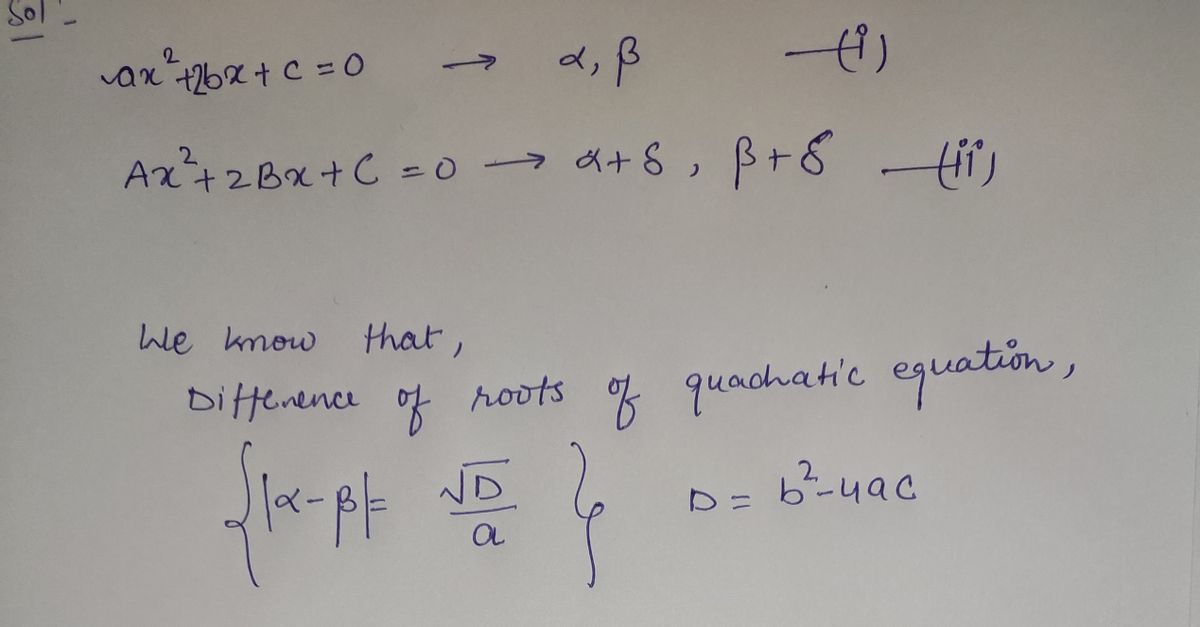 Sol -
ax²+2bx + c = 0 → α, β —(i)
Ax²+2Bx+C = 0 → α+δ, β+δ —(ii)
We know that,
Difference of roots of quadratic equation,
{|α-β|= √D/a} D = b²-4ac